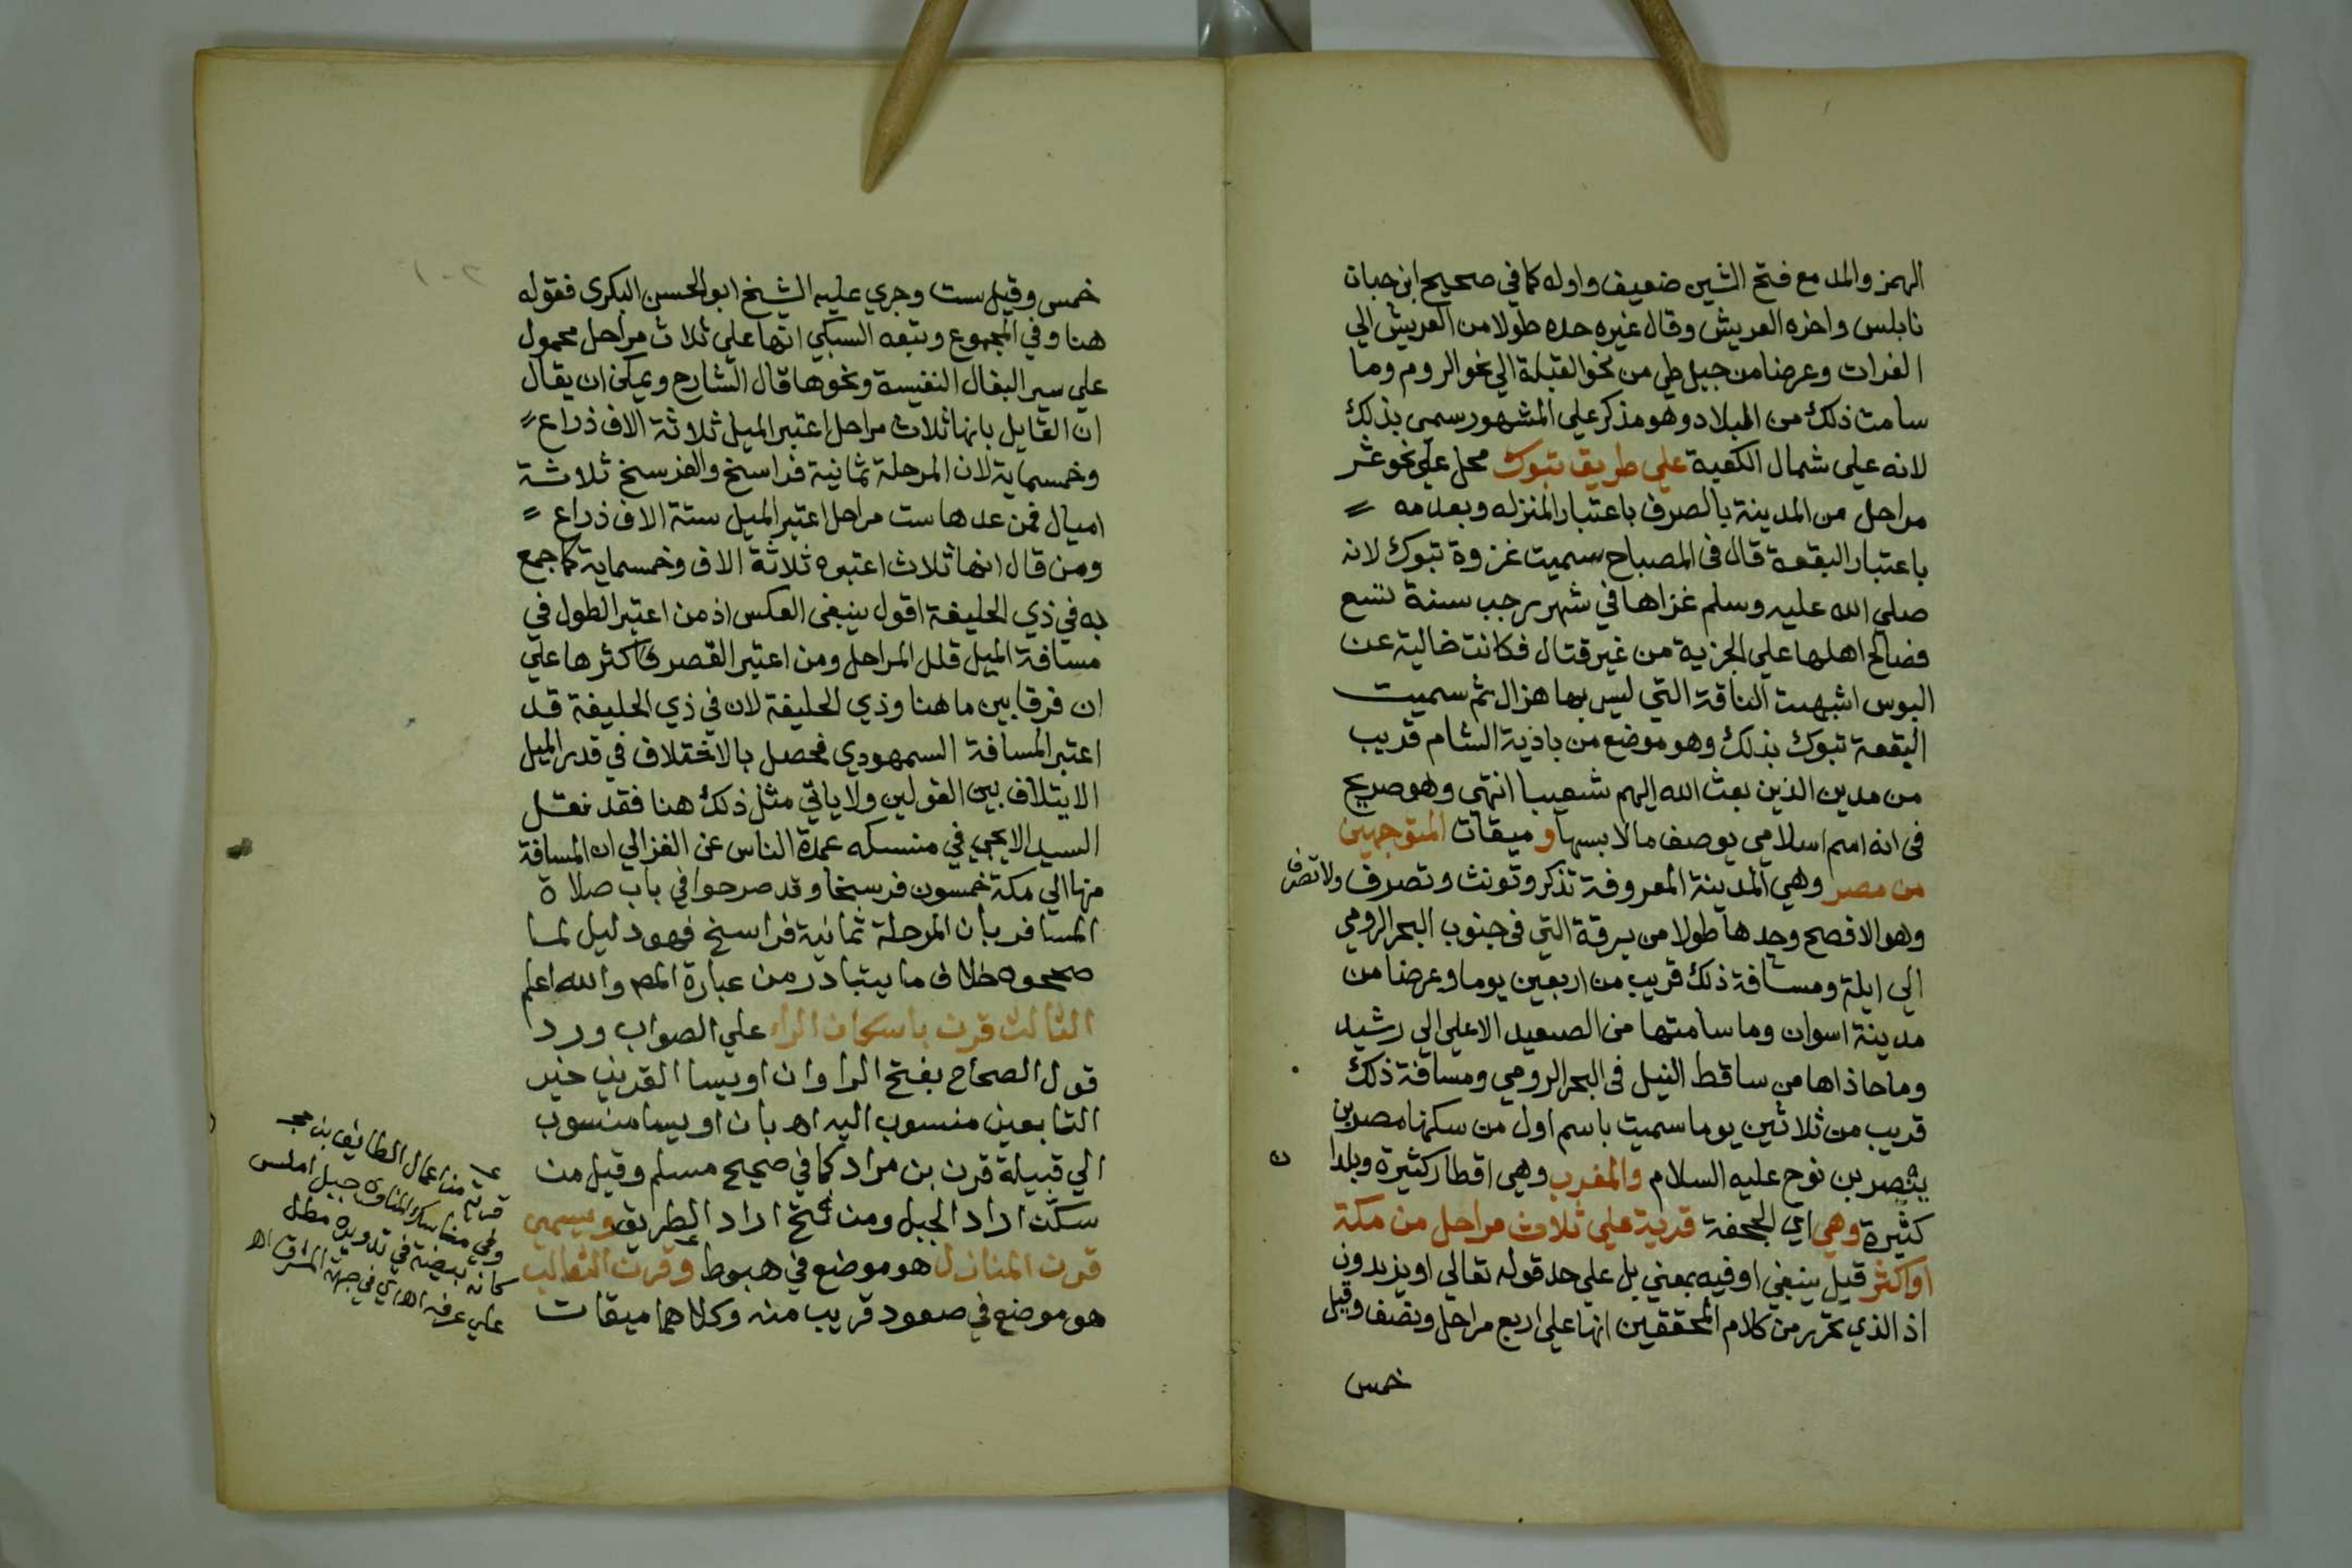 الهمز والمد مع فتح الشين ضعيف واوله كما في صحيح ابن حبان
نابلس واخره العريش وقال غيره حده طولا من العريش الي
الفرات وعرضا من جبل طي من نحو القبلة الي نحو الروم وما
سامت ذلك من البلاد وهو مذكر علي المشهور سمي بذلك
لانه علي شمال الكعبة علي طريق تبوك محل علي نحو عشر
مراحل من المدينة بالصرف باعتبار المنزله وبعدمه
باعتبار البقعة قال في المصباح سميت غزوة تبوك لانه
صلي الله عليه وسلم غزاها في شهر رجب سنة تسع
فصالح اهلها علي الجزية من غير قتال فكانت خالية عن
البوس اشبهت الناقة التي ليس بها هزال ثم سميت
البقعة تبوك بذلك وهو موضع من باذية الشام قريب
من مدين الذين بعث الله اليهم شعيبا انتهي وهو صريح
في انه اسم اسلامي بوصف مالابسها وميقات المتوجهين
من مصر وهي المدينة المعروفة تذكر وتونث وتصرف ولا تصرف
وهو الافصح وحدها طولا من برقة التي في جنوب البحر الرومي
الي ايلة ومسافة ذلك قريب من اربعين يوما وعرضا من
مدينة اسوان وما سامتها من الصعيد الاعلي الي رشيد
وما حاذاها من ساقط النيل في البحر الرومي ومسافة ذلك
قريب من ثلاثين يوما سميت باسم اول من سكنها مصر بن
بنصر بن نوح عليه السلام والمغرب وهي اقطار كثيرة وبلدا
ن
كثيرة وهي اي الجحفة قرية علي ثلاث مراحل من مكة
او اكثر قيل ينبغي او فيه بمعني بل علي حد قوله تعالي او يزيدون
اذ الذي تحرر من كلام المحققين انها علي اربع مراحل ونصف وقيل
خمس
خمس وقيل ست وجري عليه الشيخ ابو الحسن البكري فقوله
هنا وفي المجموع وتبعه السبكي انها علي ثلاث مراحل محمول
علي سير البغال النفيسة ونحوها قال الشارح ويمكن ان يقال
ان القايل بانها ثلاث مراحل اعتبر الميل ثلاثة الاف ذراع
وخمسماية لان المرحلة ثمانية فراسخ والفرسخ ثلاثة
اميال فمن عدها ست مراحل اعتبر الميل ستة الاف ذراع
ومن قال انها ثلاث اعتبره ثلاثة الاف وخمسماية كما جمع
به في ذي الحليفة اقول ينبغي العكس اذ من اعتبر الطول في
مسافة الميل قلل المراحل ومن اعتبر القصر كثرها علي
ان فرقا بين ما هنا وذي الحليفة لان في ذي الحليفة قد
اعتبر المسافة السمهودي فحصل بالاختلاف في قدر الميل
الايتلاف بين القولين ولا ياتي مثل ذلك هنا فقد نقل
السيد الايجي في منسكه عمدة الناس عن الغزالي ان المسافة
منها الي مكة خمسون فرسخا وقد صرحوا في باب صلاة
المسافر بان المرحلة ثمانية فراسخ فهو دليل لما
صححوه خلاف ما يتبادر من عبارة المص والله اعلم
الثالث قرن باسكان الراء علي الصواب ورد
قول الصحاح بفتح الرا وان اويسا القرني خير
التابعين منسوب اليه اه بان اويسا منسوب
الي قبيلة قرن بن مراد كما في صحيح مسلم وقيل من
سكن اراد الجبل ومن فتح اراد الطريق ويسمي
قرن المنازل هو موضع في هبوط وقرن الثعالب
هو موضع في صعود قريب منه وكلاهما ميقات
قرية من اعمال الطايف
جبل املس
كانه بيضة في تدويره مطل
علي عرفه